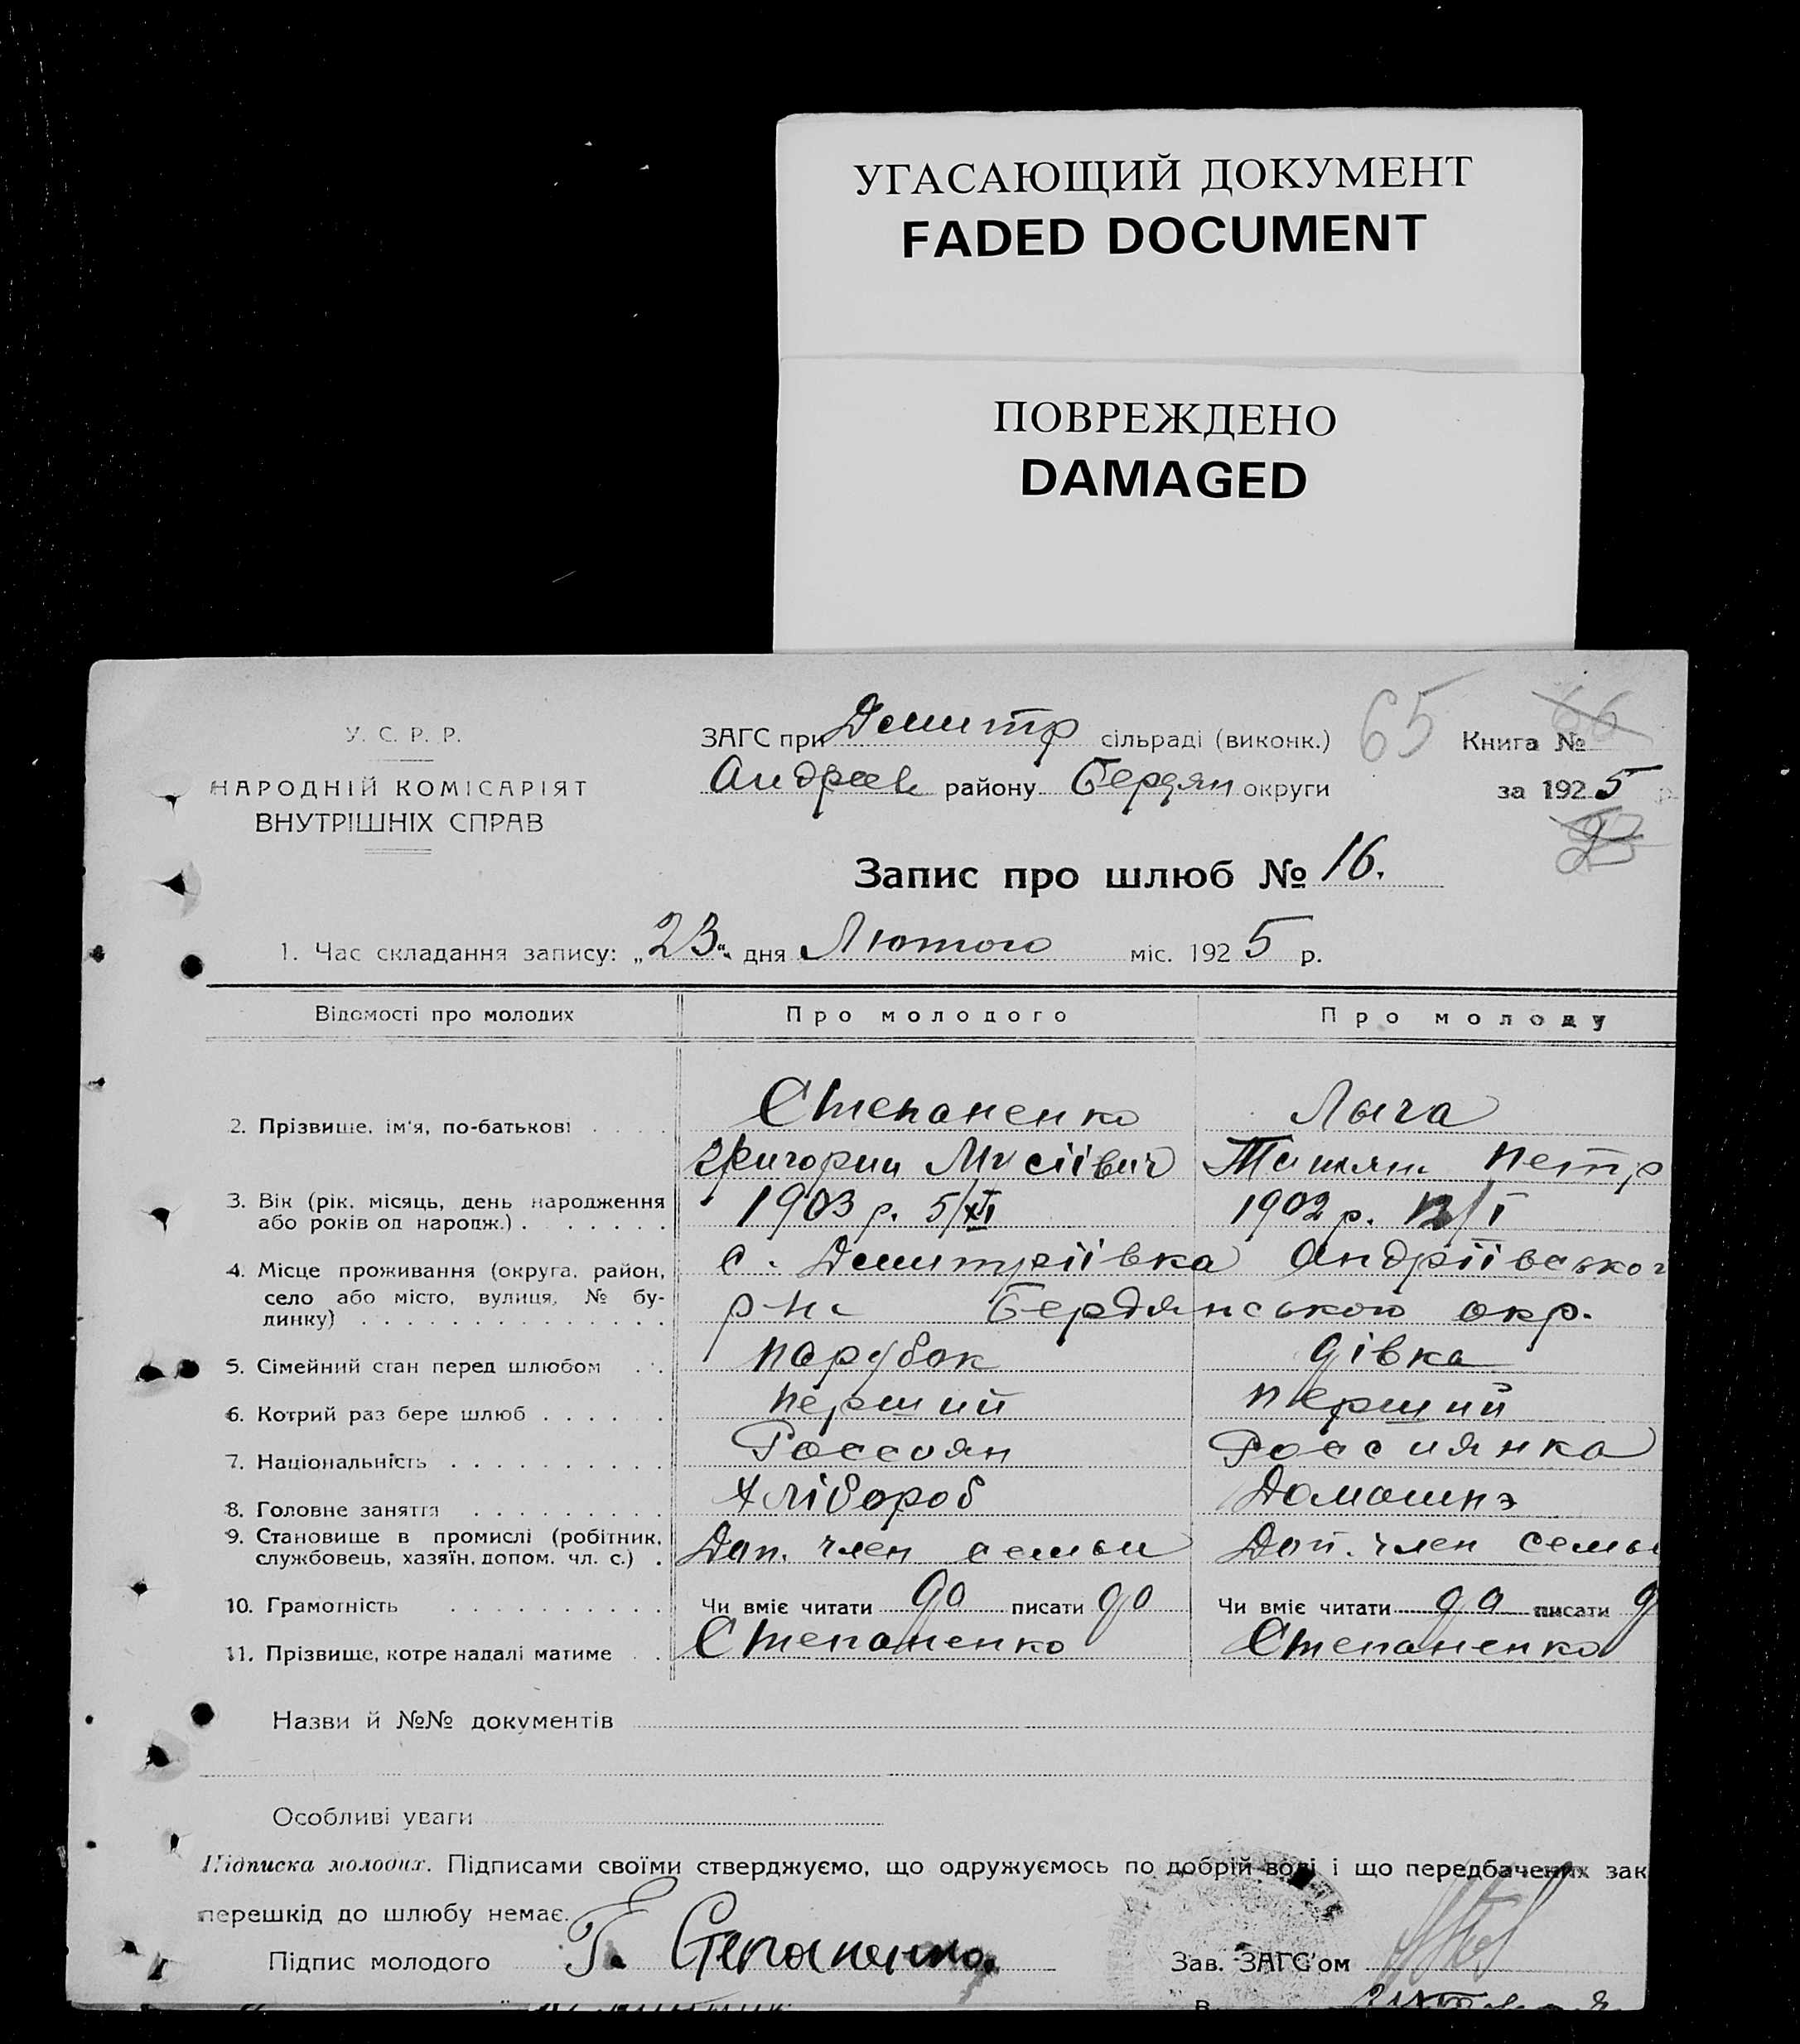 УГАСАЮЩИЙ ДОКУМЕНТ
FADED DOCUMENT
ПОВРЕЖДЕНО
DAMAGED
У. С. Р. Р.
НАРОДНІЙ КОМІСАРІЯТ
ВНУТРІШНІХ СПРАВ
ЗАГС при Демитр сільраді (виконк.) 65 Книга № 66
Андреев району Бердян округи за 1925 р.
Запис про шлюб № 16.
1. Час складання запису: „23" дня Лютого міс. 1925 р.
Відомості про молодих Про молодого Про молоду
2. Прізвище, ім'я, по-батькові Степаненко Лыга
Григории Мусіівич Петр
3. Вік (рік, місяць, день народження 1903 р. 5/XI 1902 р. 12/I
або років од народж.)
4. Місце проживання (округа, район, с. Демитріівка Андріівськог
село або місто, вулиця, № бу- р-на Бердянського окр.
динку)
5. Сімейний стан перед шлюбом парубок дівка
6. Котрий раз бере шлюб перший перший
7. Національність Россоян Россиянка
8. Головне заняття Хлібороб Домашнэ
9. Становище в промислі (робітник, Доп. член семьи Доп. член семьи
службовець, хазяїн, допом. чл. с.)
10. Грамотність Чи вміє читати да писати да Чи вміє читати да писати д
11. Прізвище, котре надалі матиме Степаненко Степаненко
Назви й №№ документів
Особливі уваги
Підписка молодих. Підписами своїми стверджуємо, що одружуємось по добрій волі і що передбачених зак
перешкід до шлюбу немає.
Підпис молодого Г. Степаненко Зав. ЗАГС'ом